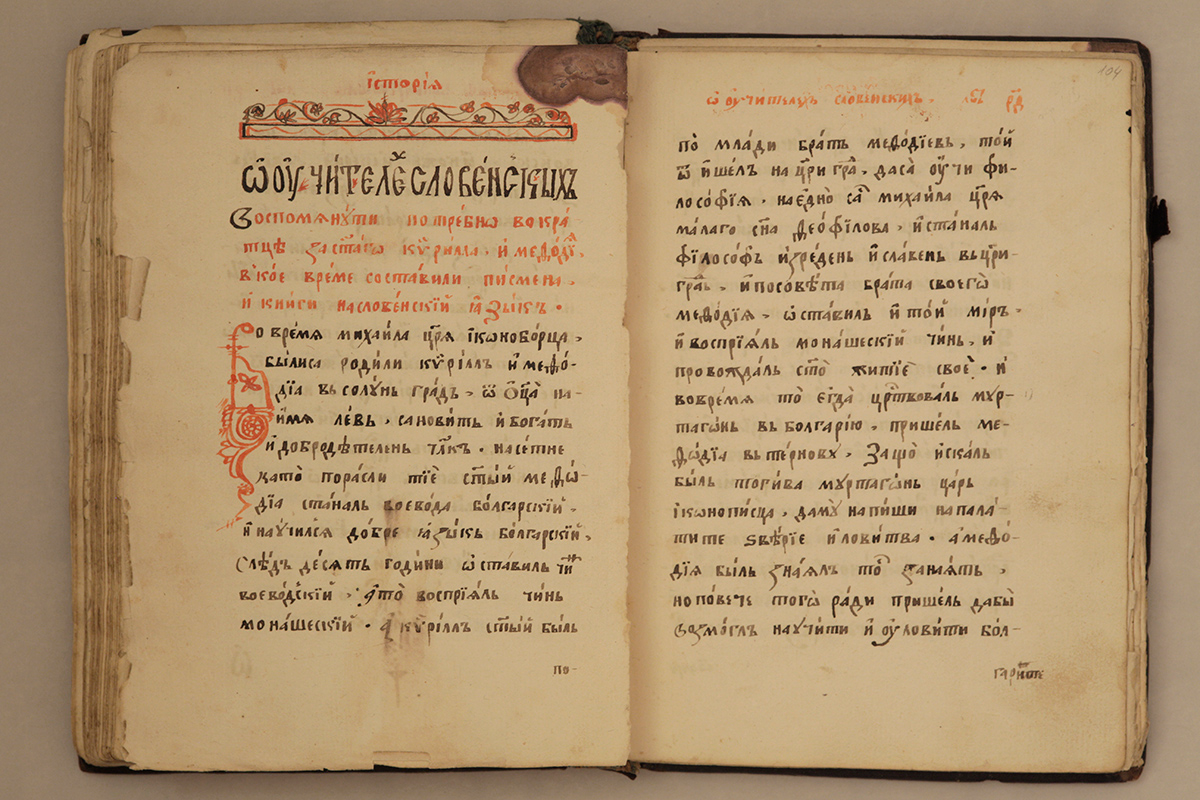 і҆сторі́ѧ
Ѡ ᲂу҆чи́телехъ слове́нскыхъ
Воспомѧнꙋ́ти потре́бнѡ вокра́
тцѣ за ст҃а́гѡ кѷри́лла, и҆ меѳо́дїѧ,
в кое́ вре́ме соста́вили пи́смена,
и҆ кни́ги на слове́нскїй ꙗ҆зы́къ.
о вре́мѧ миха́ила цр҃ѧ і҆конобо́рца,
бы́лиса роди́ли кѷрі́ллъ и҆ меѳо́-
дїа вь солꙋ́нь гра́дь, ѿ ѻ҆ц҃а̀ на-
и҆́мѧ ле́вь, санови́ть и҆ бога́ть
и҆ добродѣ́телень чл҃къ. насе́тне
като̀ пора́сли тїе́ ст҃ы́й меѳѡ́-
дїа ста́наль воево́да бо́лгарскїй,
и҆ научи́лсѧ до́бре ꙗ҆зы́кь бо́лгарскїй,
слѣ́дъ де́сѧть годи́ни ѡ҆ста́виль чи́нъ
воево́дскїй, а҆ то̀ воспрїѧ́ль чи́нь
мона́шескїй. А҆ кѷрі́ллъ ст҃ы́й бы́ль
по-
104
ѡ ᲂу҆чи́телихъ слове́нскихъ. рд҃
по̀ мла́ди бра́ть меѳо́дїевь, то́й
ѿи҆ше́л на цр҃и гра́д, да са ᲂу҆́чи фи-
лосо́фїѧ. на є҆дно̀ са́м миха́ила цр҃ѧ
ма́лаго сн҃а ѳео́филова, и҆ ста́наль
філосо́фъ и҆зре́день и҆ сла́вень вь цр҃и-
гра́дь, и҆ посовѣ́та бра́та своего̀
меѳо́дїѧ, ѡ҆ста́виль и҆ то́й мі́ръ.
и҆ воспрїѧ́ль мона́шескїй чи́нь, и҆
провожда́ль ст҃о̀ житїѐ своѐ. и҆
во вре́мѧ то̀ є҆гда̀ црⷭ҇твова́ль мꙋр-
таго́нь вь болга́рїю, прише́ль ме-
ѳѡ́дїа вь те́рновъ, защо̀ и҆ска́ль
бы́ль тоги́ва мꙋртаго́нь ца́рь
і҆конопи́сца, да мꙋ̀ напи́ши на пала́-
ти те ѕвѣ́рїе и҆ лови́тва. а҆ меѳо́-
дїѧ бы́ль зна́ѧлъ то́й зана́ѧть,
но по́вече тогѡ̀ ра́ди прише́ль да бы̀
возмо́глъ научи́ти и҆ ᲂу҆лови́ти бо́л-
гарите